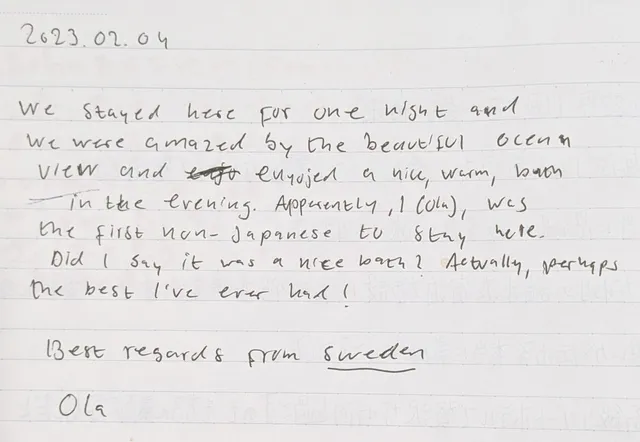 2023.02.04
We stayed here for one night and
we were amazed by the beautiful ocean
view and enyojed a nice, warm, bath
in the evening. Apparently, I (Ola), was
the first non-Japanese to stay here.
Did I say it was a nice bath? Actually, perhaps
the best I've ever had!
Best regards from Sweden
Ola